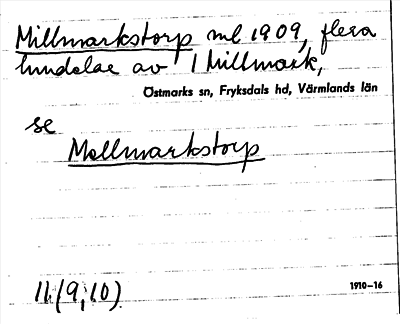 Millmarkstorp ml 1909, flera
hundelar av 1 Millmark,
Östmarks sn, Fryksdals hd, Värmlands län
se
Mollmarkstorp
11(9,10)
1910-16